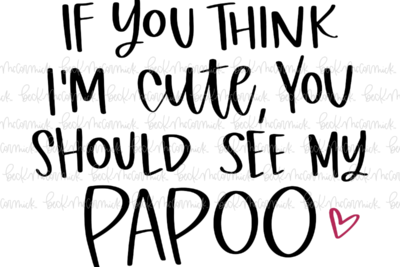 IF YOU THINK
I'M cute, YOU
SHOULD SEE MY
PAPOO